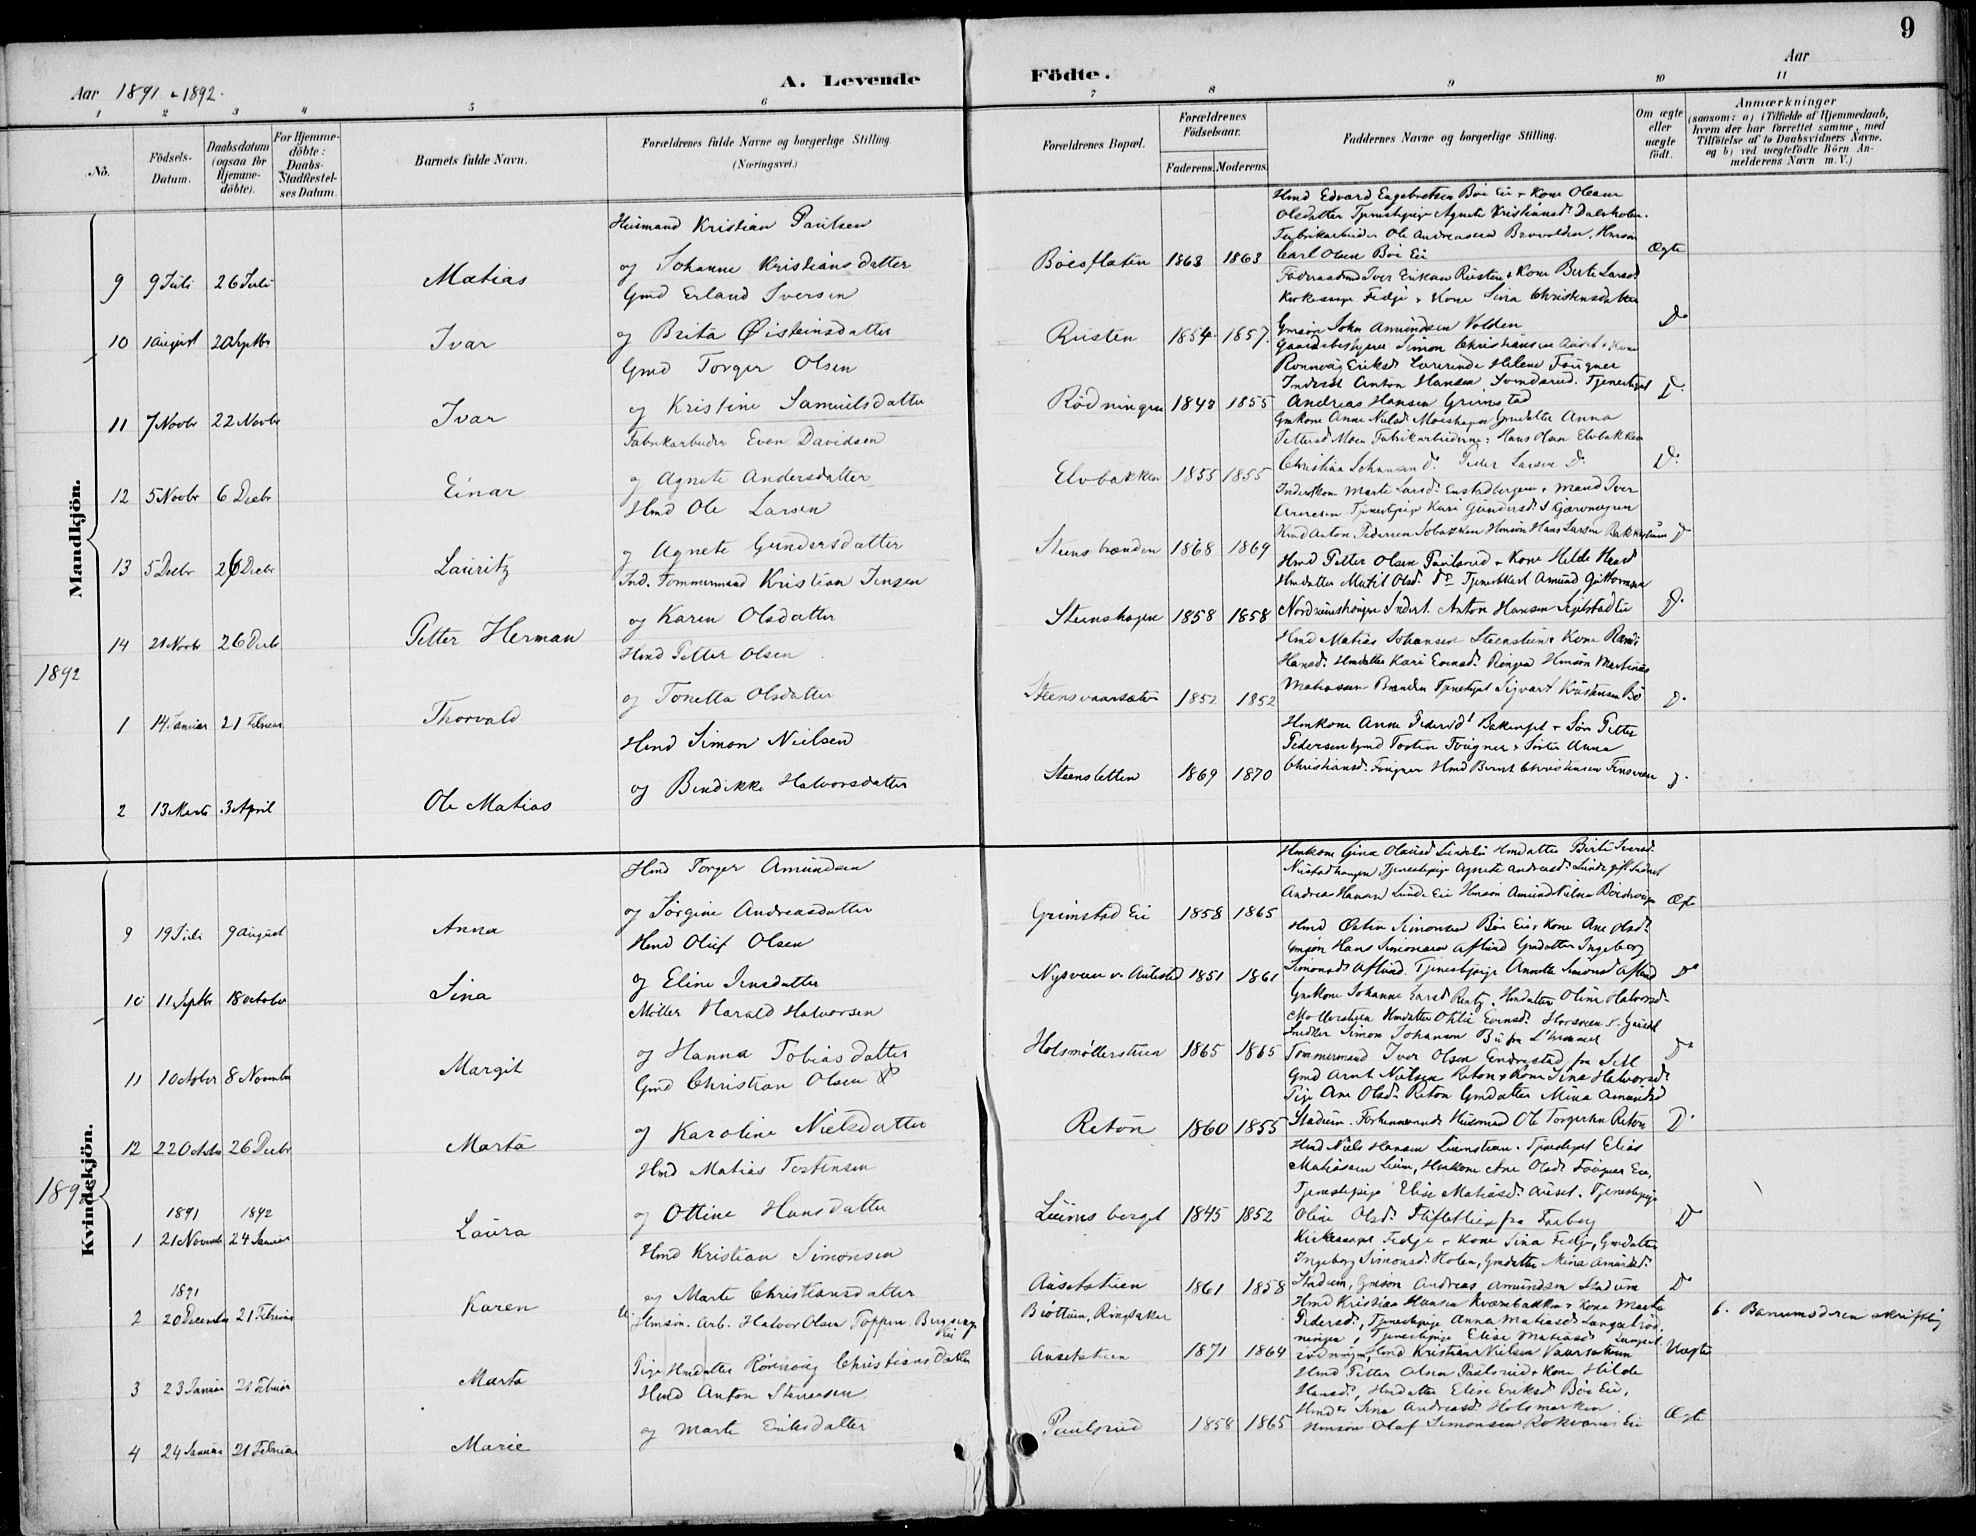 9
Aar 1891 - 1892.
A. Levende Födte.
Aar
1 2 3 4 5 6 7 8 9 10 11
No.
Födsels-Datum.
Daabsdatum (ogsaa for Hjemme-döbte).
For Hjemme-döbte: Daabs-Stadfæstel-ses Datum.
Barnets fulde Navn.
Forældrenes fulde Navne og borgerlige Stilling. (Næringsvei.)
Forældrenes Bopæl.
Forældrenes Födselsaar.
Faderens. Moderens.
Faddernes Navne og borgerlige Stilling.
Om ægte eller uægte født.
Anmærkninger (saasom: a) i Tilfælde af Hjemmedaab, hvem der har forrettet samme, med Tilföielse af to Daabsvidners Navne, og b) ved uægtefödte Börn An-melderens Navn m. V.)
Mandkjön.
9 9 Juli 26 Juli Matias
Husmand Kristian Paulsen
og Johanne Kristiansdatter
Böesflaten 1863 1863
Hmd Edvard Engebretsen Böe Eie + Kone Oleane
Olsdatter Tjenestepige Agnete Kristiansd.
Fabrikarbeider Ole Andreassen
Carl Olsen Böe Eie
Ægte
10 1 August 20 Septbr Ivar
Gmd Erland Iversen
og Brita Øisteinsdatter
Rusten 1854 1857.
Föderaadsmd Iver Eriksen Rusten + Kone Berte Larsd.
Kirkesanger Fedje + Kone Sina Christensdatter
Gmsön John Amundsen Volden
Do
11 7 Novbr 22 Novbr Ivar
Gmd Torger Olsen
og Kristine Samuelsdatter
Rödningen 1843 1855
Gaardbestyrer Simon Christiansen Auset + Kone
Rönnaug Eriksd. Lærerinde Helene Fougner
Inderst Anton Hansen Svendsrud. Tjenestegut
Andreas Hansen Grimstad
D.
12 5 Novbr 6 Decbr Einar
Fabrikarbeider Even Davidsen
og Agnete Andersdatter
Elvbakken 1855 1855
Gmkone Anne Nilsd. Moeshagen Gmdatter Anna
Pettersd Moen Fabrikarbeiderne: Hans Olsen Elvbakken
Christian Johansen D. Peder Larsen D.
D.
13 5 Decbr 26 Decbr Lauritz
Hmd Ole Larsen
og Agnete Gundersdatter
Steensbænden 1868 1869
Inderstkone Marte Larsd. + Mand Iver
Arnesen Tjenestepige Kari Gundersd.
Hmd Anton Pedersen Hmsön Hans Larsen
D
14 21 Novbr 26 Decbr Petter Herman
Ind. Tommermand Kristian Jensen
og Karen Olsdatter
Steenshagen 1858 1858
Hmd Petter Olsen Paulsrud + Kone Hilde Hansd
Hmdatter Matil Olsd. Do Tjenestkarl Amund Guttormsen
Inderst. Anton Hansen Eie
D.
1892
1 14 Januar 21 Februar Thorvald
Hmd Petter Olsen
og Tonetta Olsdatter
Steensvaarsæter 1852 1852
Hmd Matias Johansen Steenstuen + Kone Randi
Hansd. Hmdatter Kari Evensd. Ringen Hmsön Martinus
Matiassen Brænden Tjenestegut Sigvart Kristensen Bö
D.
2 13 Marts 3 April Ole Matias
Hmd Simon Nielsen
og Bendikke Halvorsdatter
Steensletten 1869 1870
Hmkone Anne Pedersd + Sön Petter
Pedersen Gmd Torsten Fougner + Söster Anna
Christiansd. Fougner Hmd Bernt Christensen
D.
Kvindekjön.
9 19 Juli 9 August Anna
Hmd Torger Amundsen
og Jörgine Andreasdatter
Grimstad Eie 1858 1865
Hmkone Gina Hmdatter Berte Iversd.
Tjenestepige Agnete Andreasd. Lunde gift Inderst
Andreas Hansen Lunde Eie Hmsön Amund Nilsen
Ægte
10 11 Septbr 18 October Sina
Hmd Oluf Olsen
og Eline Jensdatter
Nysveen v. Aulestad 1851 1861
Hmd Østen Simonsen Böe Eie + Kone Ane Olsd.
Gmsön Hans Simonsen Aflund Gmdatter Ingeborg
Simonsd. Aflund. Tjenestepige Annette Simonsd Aflund
Do
11 1 October 8 November Margit
Möller Harald Halvorsen
og Hanna Tobiasdatter
Holsmöllerstuen 1865 1865
Gmkone Johanne Hmdatter Oline Halvorsd.
Möllerstuen Hmdatter Otilie Evensd.
Simon Johansen
Tommermand Iver Olsen
Do
12 22 October 26 Decbr Marta
Gmd Christian Olsen
og Karoline Nielsdatter
Reton 1860 1855
Gmd Arnt Nielsen Reton + Kone Sina Halvorsd.
Pige Ane Olsd. Reton Gmdatter Mina Amundsd
Stadum. Husmand Ole Torgersen Reton
D.
1892
1 1891 21 Novembr 1892 24 Januar Laura
Hmd Matias Tostensen
og Ottine Hansdatter
Liumsberget 1845 1852
Hmd Niels Hansen Liumstuen. Tjenestegut Elias
Matiassen Lium, Hmkone Ane Olsd. Fougner Eie,
Tjenestepige Elise Matiasd. Auset. Tjenestepige
Oline Olsd. fra Faaberg
D
2 1891 20 December 21 Februar Karen
Hmd Kristian Simonsen
og Marte Christiansdatter
Ausetstuen 1861 1858
Kirkesanger Fedje + Kone Sina Fedje, Gmdatter
Ingeborg Simonsd. Holen, Gmdatter Mina Amundsd.
Stadum, Gmsön Andreas Amundsen Stadum
Do
3 23 Januar 21 Februar Marta
Hmsön. Arb. Halvor Olsen Toppen
Pige Hmdatter Rönnaug Christiansdatter
Biöttuen, Ringsaker
Ausetstuen 1871 1864
Hmd Kristian Hansen Kværnbakken + Kone Marte
Pedersd., Tjenestepige Anna Matiasd.
Tjenestepige Elise Matiasd
Hmd Kristian Nielsen
Uægte
b. Barnemoderen skriftlig
4 24 Januar 21 Februar Marie
Hmd Anton Steensen
og Marte Eriksdatter
Paulsrud 1858 1865
Hmd Petter Olsen Paulsrud + Kone Hilde
Hansd., Hmdatter Elise Eriksd. Böe Eie,
Sina Andreasd. Holsmarken
Hmsön Olaf Simonsen Eie
Ægte